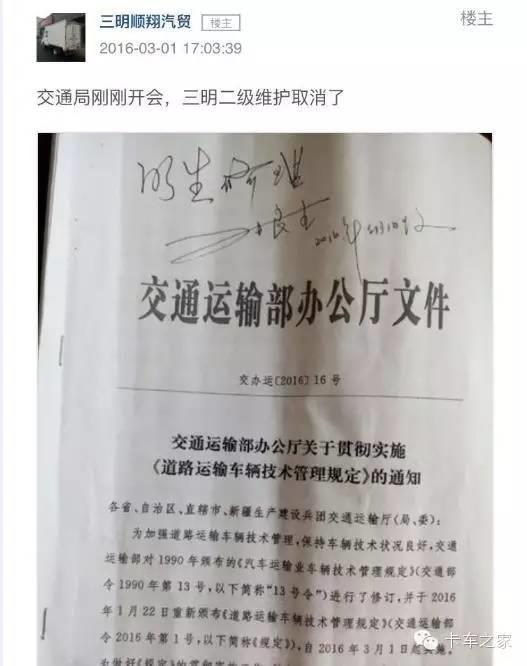 三明顺翔汽贸 楼主
楼主
2016-03-01 17:03:39
交通局刚刚开会，三明二级维护取消了
交通运输部办公厅文件
交办运〔2016〕16号
交通运输部办公厅关于贯彻实施
《道路运输车辆技术管理规定》的通知
各省、自治区、直辖市、新疆生产建设兵团交通运输厅（局、委）：
为加强道路运输车辆技术管理，保持车辆技术状况良好，交通
运输部对1990年颁布的《汽车运输业车辆技术管理规定》（交通部
令1990年第13号，以下简称“13号令”）进行了修订，并于2016
年1月22日重新颁布《道路运输车辆技术管理规定》（交通运输部
令2016年第1号，以下简称《规定》），自2016年3月1日起实施。
卡车之家